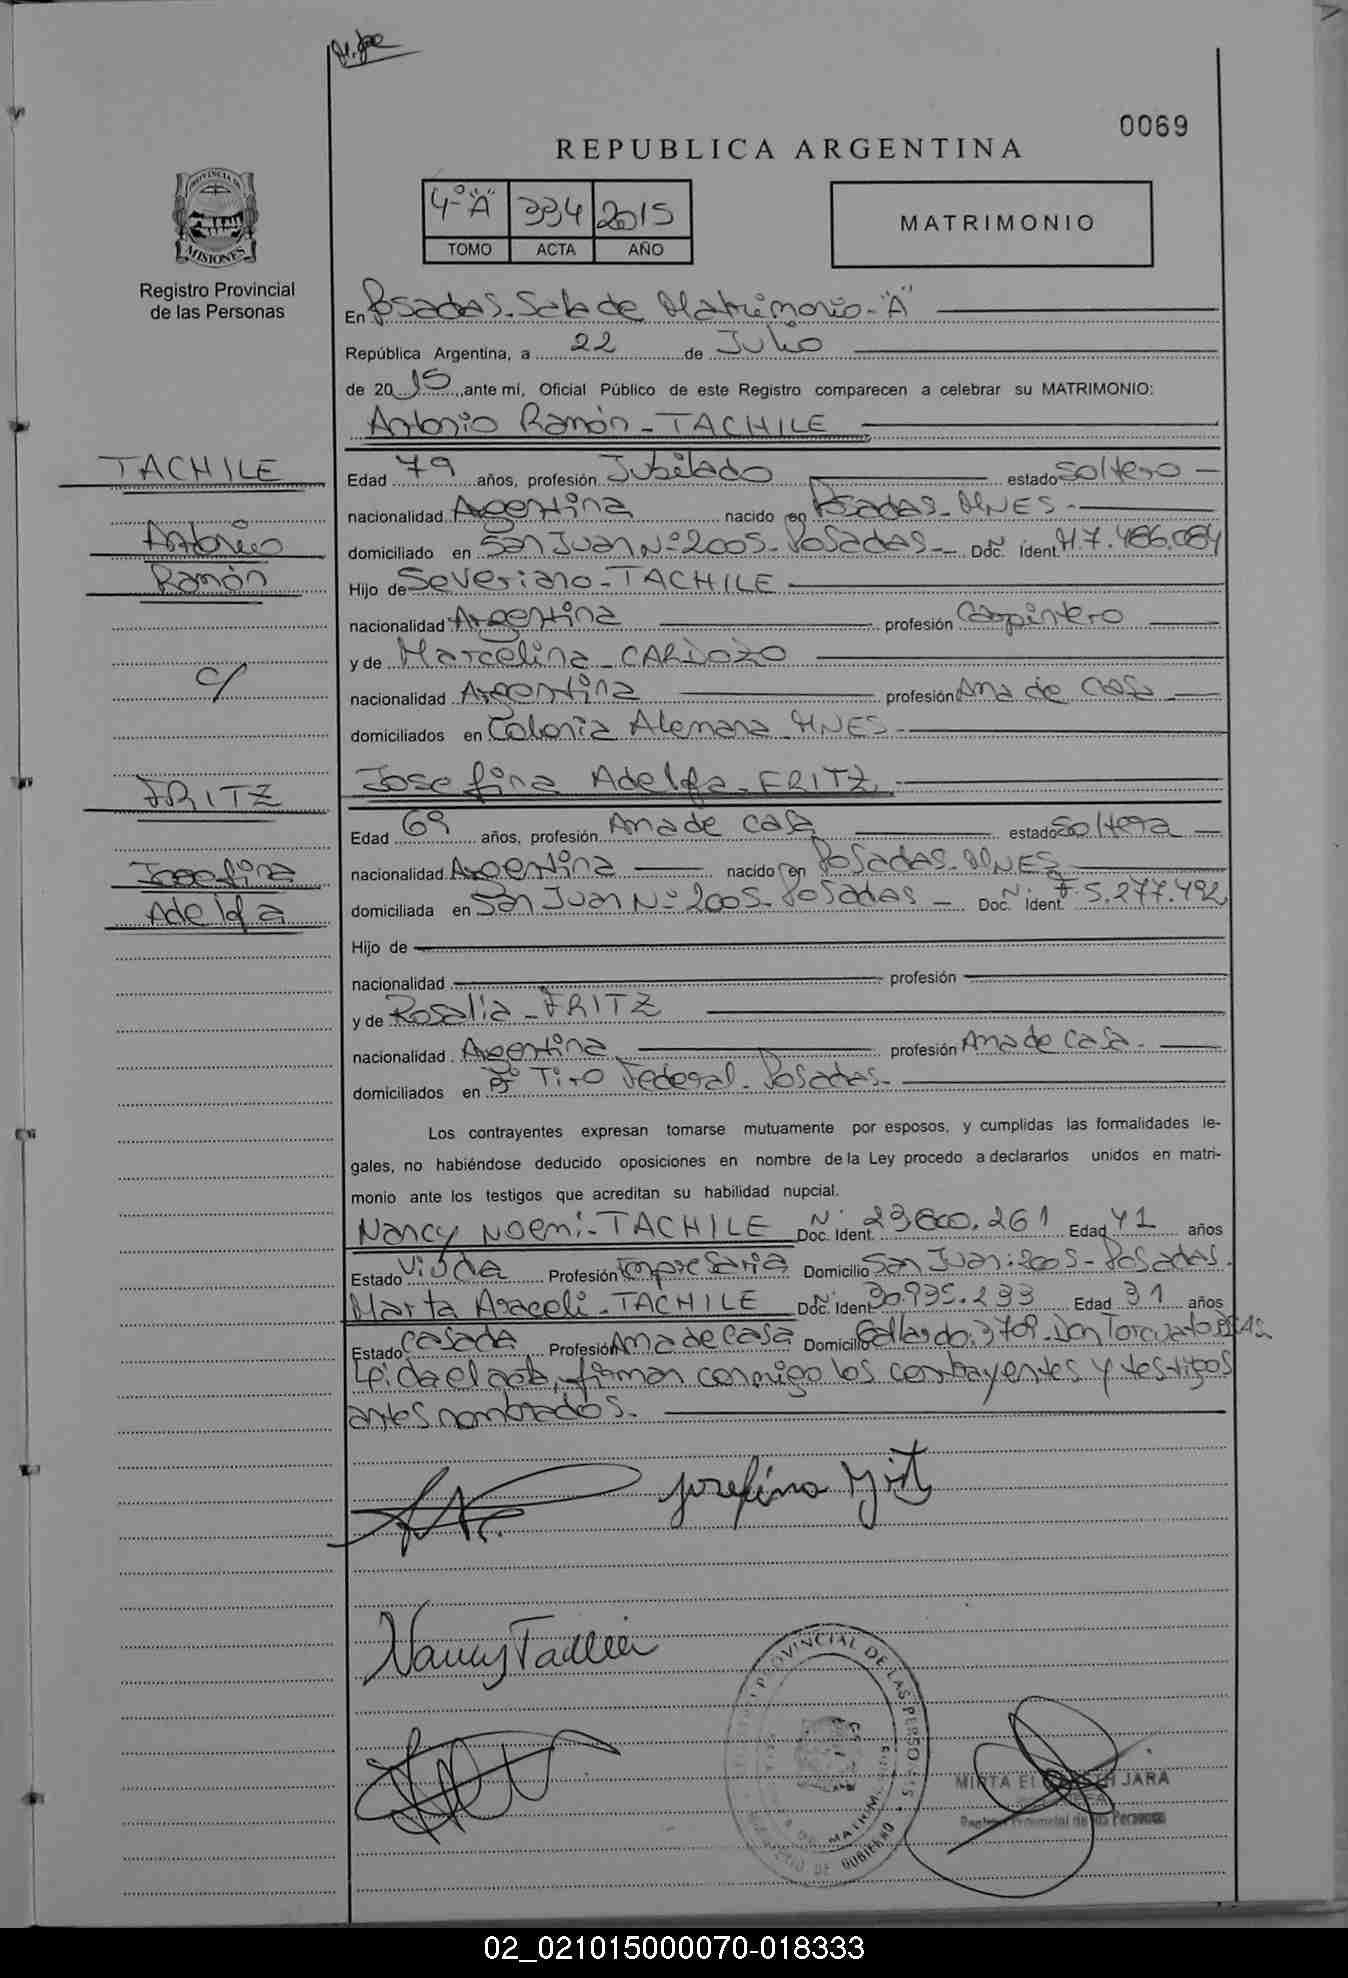 0069
REPUBLICA ARGENTINA
PROVINCIA DE
MISIONES
Registro Provincial
de las Personas
4º "A" 334 2015
TOMO ACTA AÑO
MATRIMONIO
En Posadas - Sala de Matrimonio - "A"
República Argentina, a 22 de Julio
de 2015, ante mí, Oficial Público de este Registro comparecen a celebrar su MATRIMONIO:
Antonio Ramón - TACHILE
TACHILE
Antonio
Ramón
c/
FRITZ
Josefina
Adelfa
Edad 79 años, profesión Jubilado estado soltero
nacionalidad Argentina nacido en Posadas - MNES -
domiciliado en San Juan Nº 2005 - Posadas - Doc. Nº Ident. M.7.486.084
Hijo de Severiano - TACHILE
nacionalidad Argentina profesión Carpintero
y de Marcelina - CARDOZO
nacionalidad Argentina profesión Ama de Casa
domiciliados en Colonia Alemana - MNES -
Josefina Adelfa - FRITZ
Edad 69 años, profesión Ama de casa estado soltera
nacionalidad Argentina nacido en Posadas - MNES
domiciliada en San Juan Nº 2005 - Posadas - Doc. Nº Ident. F 5.277.492
Hijo de
nacionalidad profesión
y de Rosalia - FRITZ
nacionalidad Argentina profesión Ama de Casa -
domiciliados en Bº Tiro Federal - Posadas -
Los contrayentes expresan tomarse mutuamente por esposos, y cumplidas las formalidades le-
gales, no habiéndose deducido oposiciones en nombre de la Ley procedo a declararlos unidos en matri-
monio ante los testigos que acreditan su habilidad nupcial.
Nancy Noemi - TACHILE Doc. Nº Ident. 23.600.261 Edad 41 años
Estado Viuda Profesión Empresaria Domicilio San Juan: 2005 - Posadas.
Marta Araceli - TACHILE Doc. Nº Ident. 30.935.233 Edad 31 años
Estado Casada Profesión Ama de casa Domicilio Gallardo: 3709 - Don Torcuato
Leida el acta, firman conmigo los contrayentes y testigos
antes nombrados.
Josefina Frit
Nancy Tachile
PROVINCIAL DE LAS PERSONAS
MATRIM.
MINISTERIO DE GOBIERNO
MIRTA JARA
Registro Provincial de las Personas
02_021015000070-018333